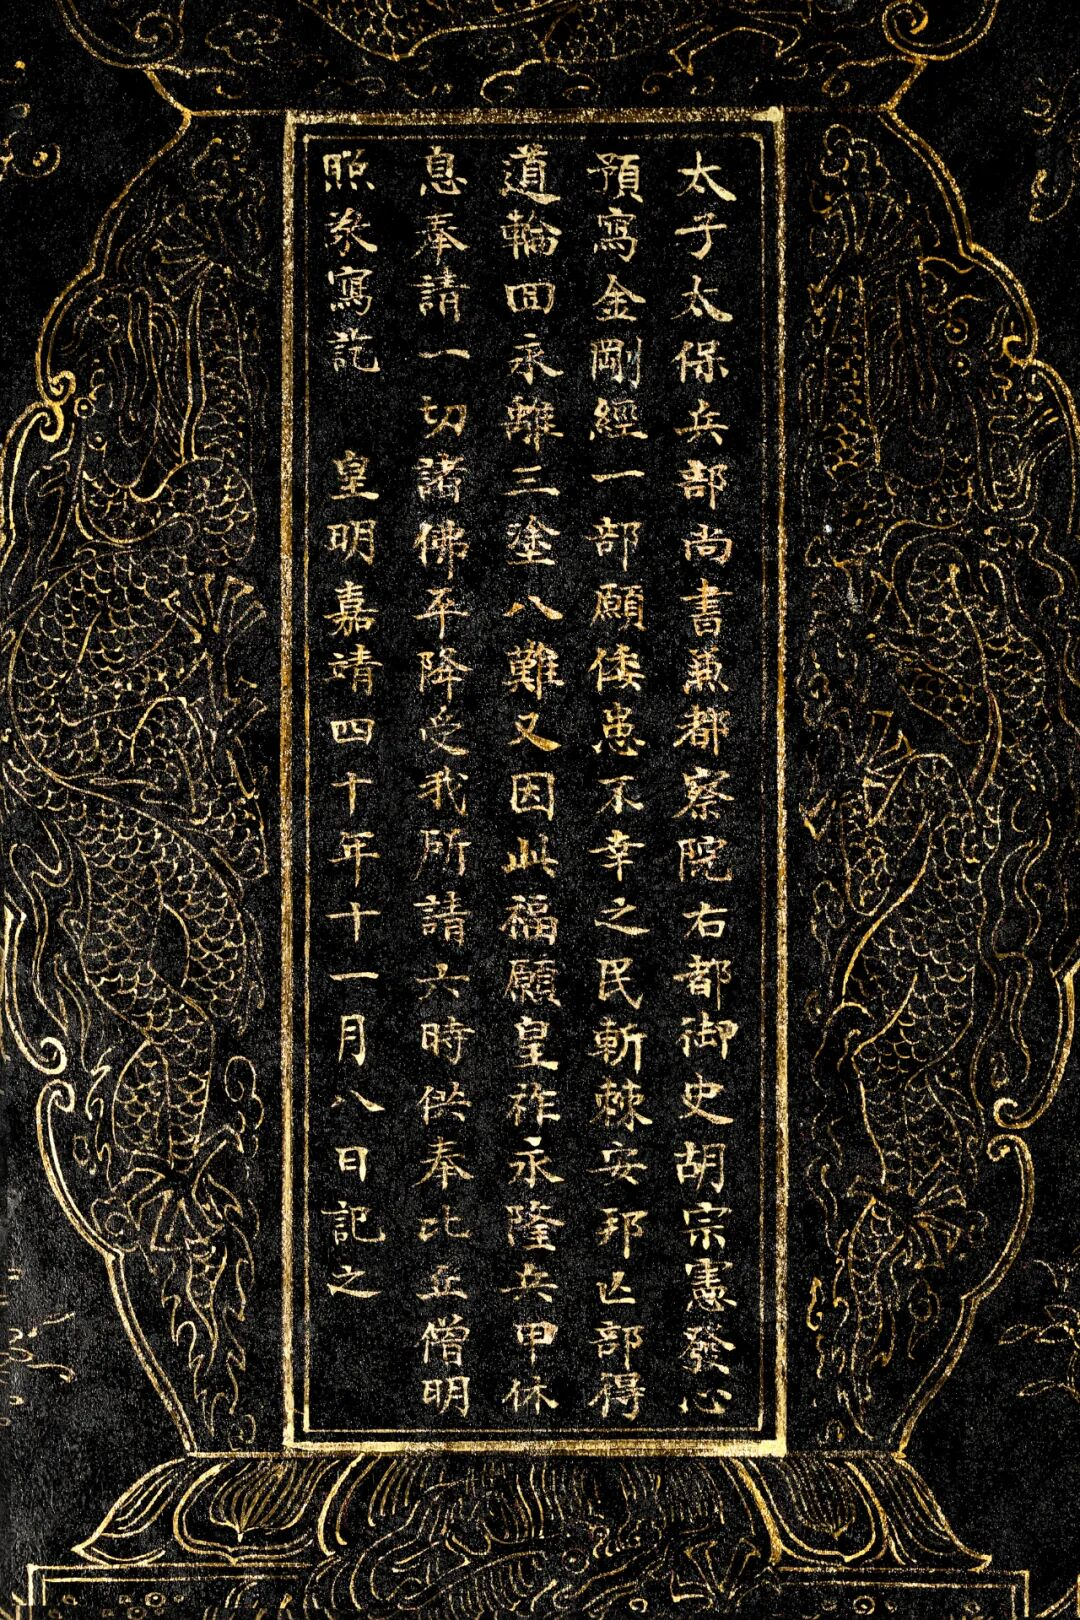 太子太保兵部尚書兼都察院右都御史胡宗憲發心
預寫金剛經一部願倭患不幸之民斬棘安邦亡部得
道輪回永離三塗八難又因此福願皇祚永隆兵甲休
息奉請一切諸佛平降受我所請六時供奉比丘僧明
照叅寫訖　皇明嘉靖四十年十一月八日記之